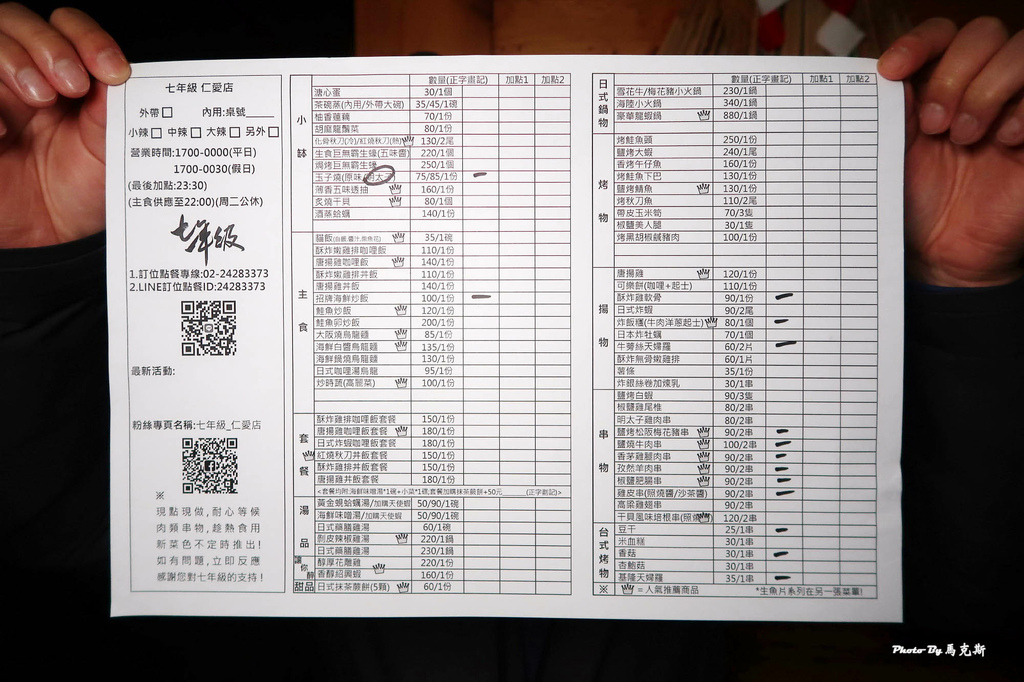 七年級 仁愛店
外帶□ 內用:桌號____
小辣□ 中辣□ 大辣□ 另外□
營業時間:1700-0000(平日)
1700-0030(假日)
(最後加點:23:30)
(主食供應至22:00)(周二公休)
七年級
1.訂位點餐專線:02-24283373
2.LINE訂位點餐ID:24283373
最新活動:
粉絲專頁名稱:七年級_仁愛店
※
現點現做,耐心等候
肉類串物,趁熱食用
新菜色不定時推出!
如有問題,立即反應
感謝您對七年級的支持!
數量(正字畫記) 加點1 加點2
小缽
溏心蛋 30/1個
茶碗蒸(內用/外帶大碗) 35/45/1碗
柚香蓮藕 70/1份
胡麻龍鬚菜 80/1份
化骨秋刀(冷)/紅燒秋刀(熱) 130/2尾
生食巨無霸生蠔(五味醬) 220/1個
焗烤巨無霸生蠔 250/1個
玉子燒(原味/明太子) 75/85/1份
薄香五味透抽 160/1份
炙燒干貝 80/1個
酒蒸蛤蠣 140/1份
主食
貓飯 35/1碗
酥炸嫩雞排咖哩飯 110/1份
唐揚雞咖哩飯 140/1份
酥炸嫩雞排丼飯 110/1份
唐揚雞丼飯 140/1份
招牌海鮮炒飯 100/1份
鮭魚炒飯 120/1份
鮭魚卵炒飯 200/1份
大阪燒烏龍麵 85/1份
海鮮白醬烏龍麵 135/1份
海鮮鍋燒烏龍麵 130/1份
日式咖哩湯烏龍 95/1份
炒時蔬(高麗菜) 100/1份
套餐
酥炸雞排咖哩飯套餐 150/1份
唐揚雞咖哩飯套餐 180/1份
日式炸蝦咖哩飯套餐 180/1份
紅燒秋刀丼飯套餐 150/1份
酥炸雞排丼飯套餐 150/1份
唐揚雞丼飯套餐 180/1份
<套餐均附:海鮮味噌湯*1碗+小菜*1碟,套餐加購抹茶蕨餅+50元______(正字劃記)>
湯品
黃金蜆蛤蠣湯/加購天使蝦 50/90/1碗
海鮮味噌湯/加購天使蝦 50/90/1碗
日式藥膳雞湯 60/1碗
剝皮辣椒雞湯 220/1鍋
日式藥膳雞湯 230/1鍋
讓你醉
醇厚花雕雞 220/1份
香醇紹興蝦 160/1份
甜品
日式抹茶蕨餅(5顆) 60/1份
數量(正字畫記) 加點1 加點2
日式鍋物
雪花牛/梅花豬小火鍋 230/1鍋
海陸小火鍋 340/1鍋
豪華龍蝦鍋 880/1鍋
烤物
烤鮭魚頭 250/1份
鹽烤大蝦 240/1尾
香烤午仔魚 160/1份
烤鮭魚下巴 130/1份
鹽烤鯖魚 130/1份
烤秋刀魚 110/2尾
帶皮玉米筍 70/3隻
椒鹽美人腿 30/1隻
烤黑胡椒鹹豬肉 100/1份
揚物
唐揚雞 120/1份
可樂餅(咖哩+起士) 110/1份
酥炸雞軟骨 90/1份
日式炸蝦 90/2尾
炸飯糰(牛肉洋蔥起士) 80/1個
日本炸牡蠣 70/1個
牛蒡絲天婦羅 60/2片
酥炸無骨嫩雞排 60/1片
薯條 35/1份
炸銀絲卷加煉乳 30/1串
串物
鹽烤白蝦 90/3隻
椒鹽雞尾椎 80/2串
明太子雞肉串 80/2串
鹽烤松阪梅花豬串 90/2串
鹽燒牛肉串 100/2串
香茅雞腿肉串 90/2串
孜然羊肉串 90/2串
椒鹽肥腸串 90/2串
雞皮串(照燒醬/沙茶醬) 90/2串
高梁雞翅串 90/2串
干貝風味培根串(照燒) 120/2串
台式烤物
豆干 25/1串
米血糕 30/1串
香菇 30/1串
杏鮑菇 30/1串
基隆天婦羅 35/1串
※ =人氣推薦商品 *生魚片系列在另一張菜單!
Photo By 馬克斯